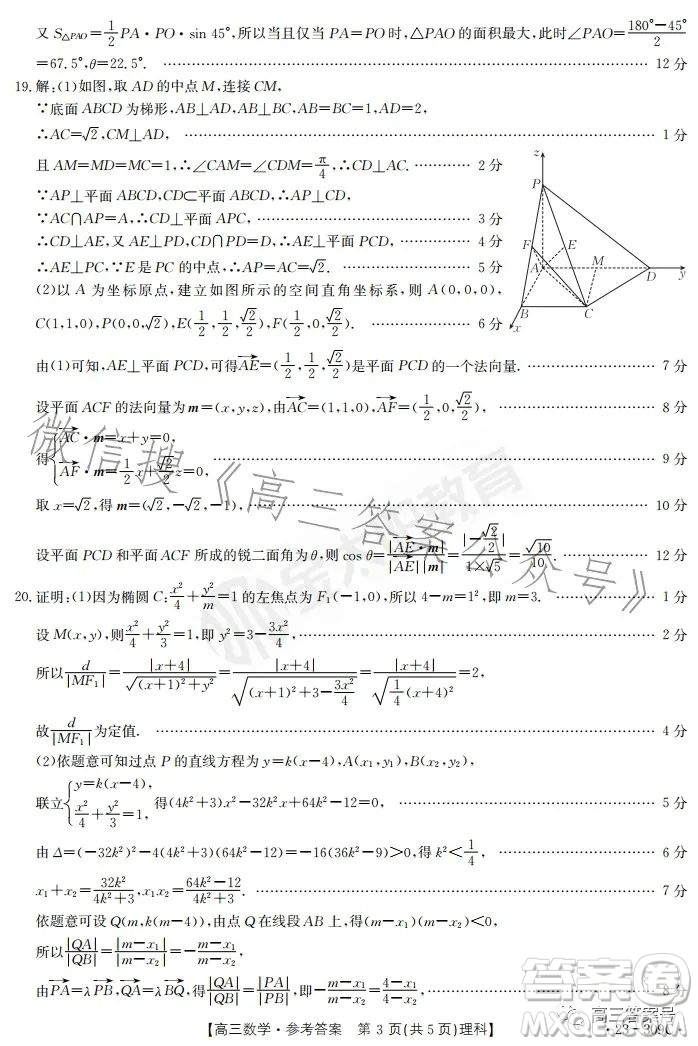 又 S△PAO=1/2 PA·PO·sin 45°,所以当且仅当 PA=PO时,△PAO的面积最大,此时∠PAO=(180°-45°)/2
=67.5°,θ=22.5°. ……12分
19.解:(1)如图,取 AD 的中点 M,连接 CM,
∵底面 ABCD 为梯形,AB⊥AD,AB=BC=1,AD=2,
∴AC=√2,CM⊥AD, ……1分
且 AM=MD=MC=1,∴∠CAM=∠CDM=π/4,∴CD⊥AC. ……2分
∵AP⊥平面 ABCD,CD⊂平面 ABCD,∴AP⊥CD,
∵AC∩AP=A,∴CD⊥平面 APC, ……3分
∴CD⊥AE,又 AE⊥PD,CD∩PD=D,∴AE⊥平面 PCD, ……4分
∴AE⊥PC,∵E 是 PC 的中点,∴AP=AC=√2. ……5分
z
P
F
E
A
M
D
y
B
C
x
(2)以 A 为坐标原点,建立如图所示的空间直角坐标系,则 A(0,0,0),
C(1,1,0),P(0,0,√2),E(1/2,1/2,√2/2),F(1/2,0,√2/2). ……6分
由(1)可知,AE⊥平面 PCD,可得AE→=(1/2,1/2,√2/2)是平面 PCD 的一个法向量. ……7分
设平面 ACF 的法向量为 m=(x,y,z),由AC→=(1,1,0),AF→=(1/2,0,√2/2), ……8分
得{AC→·m=x+y=0,
AF→·m=1/2x+√2/2z=0, ……9分
取 x=√2,得 m=(√2,-√2,-1), ……10分
设平面 PCD 和平面 ACF 所成的锐二面角为θ,则 cos θ=|AE→·m|/|AE→||m|=|-√2/2|/(1×√5)=√10/10. ……12分
20.证明:(1)因为椭圆 C:x²/4+y²/m=1的左焦点为 F₁(-1,0),所以 4-m=1²,即 m=3. ……1分
设 M(x,y),则x²/4+y²/3=1,即 y²=3-3x²/4, ……2分
所以d/|MF₁|=|x+4|/√((x+1)²+y²)=|x+4|/√((x+1)²+3-3x²/4)=|x+4|/√(1/4(x+4)²)=2,
故d/|MF₁|为定值. ……4分
(2)依题意可知过点 P 的直线方程为 y=k(x-4),A(x₁,y₁),B(x₂,y₂),
联立{y=k(x-4),
x²/4+y²/3=1, 得(4k²+3)x²-32k²x+64k²-12=0, ……5分
由 Δ=(-32k²)²-4(4k²+3)(64k²-12)=-16(36k²-9)>0,得 k²<1/4, ……6分
x₁+x₂=32k²/(4k²+3),x₁x₂=(64k²-12)/(4k²+3). ……7分
依题意可设 Q(m,k(m-4)),由点 Q 在线段 AB 上,得(m-x₁)(m-x₂)<0,
所以|QA|/|QB|=|m-x₁|/|m-x₂|=-(m-x₁)/(m-x₂),
由PA→=λPB→,QA→=λBQ→,得|QA|/|QB|=|PA|/|PB|,即-(m-x₁)/(m-x₂)=(4-x₁)/(4-x₂), ……8分
【高三数学·参考答案 第 3 页(共 5 页)理科】
·23-309C·
微信搜《高三答案公众号》
金太阳教育
答案圈
MXQE.COM
高三答案号